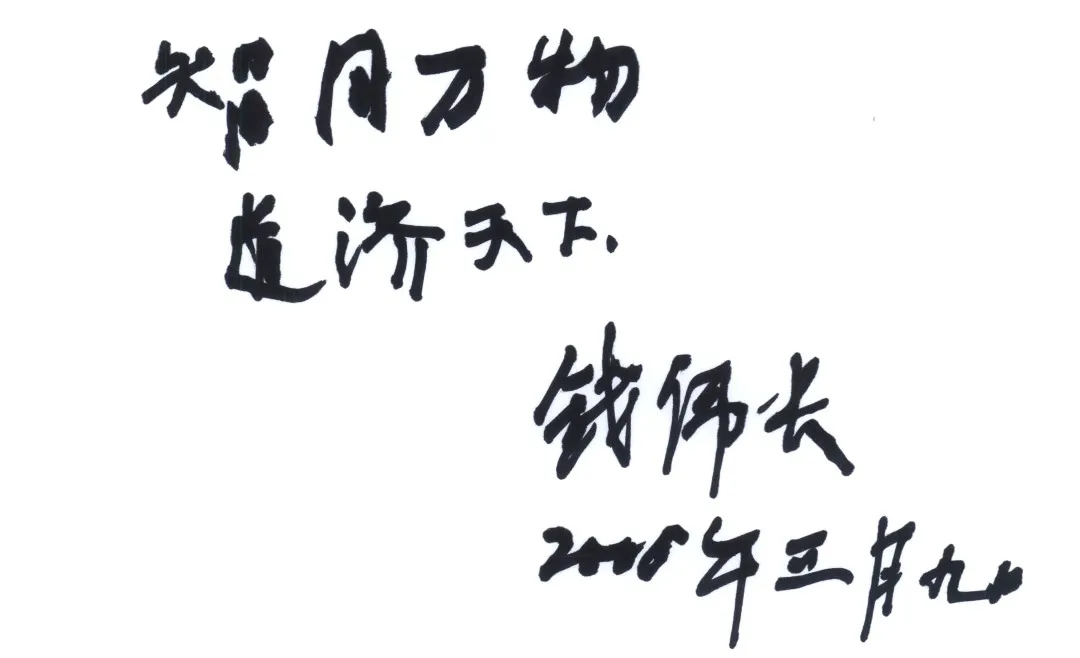 智周万物
道济天下.
钱伟长
2008年三月九日